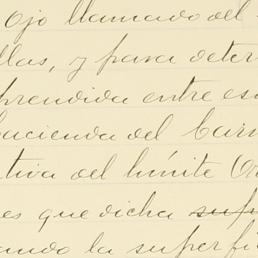 Ojo llamado del
llas, y para deter
prendida entre es
hacienda del Carm
tiva del límite Or
es que dicha
ando la superfi